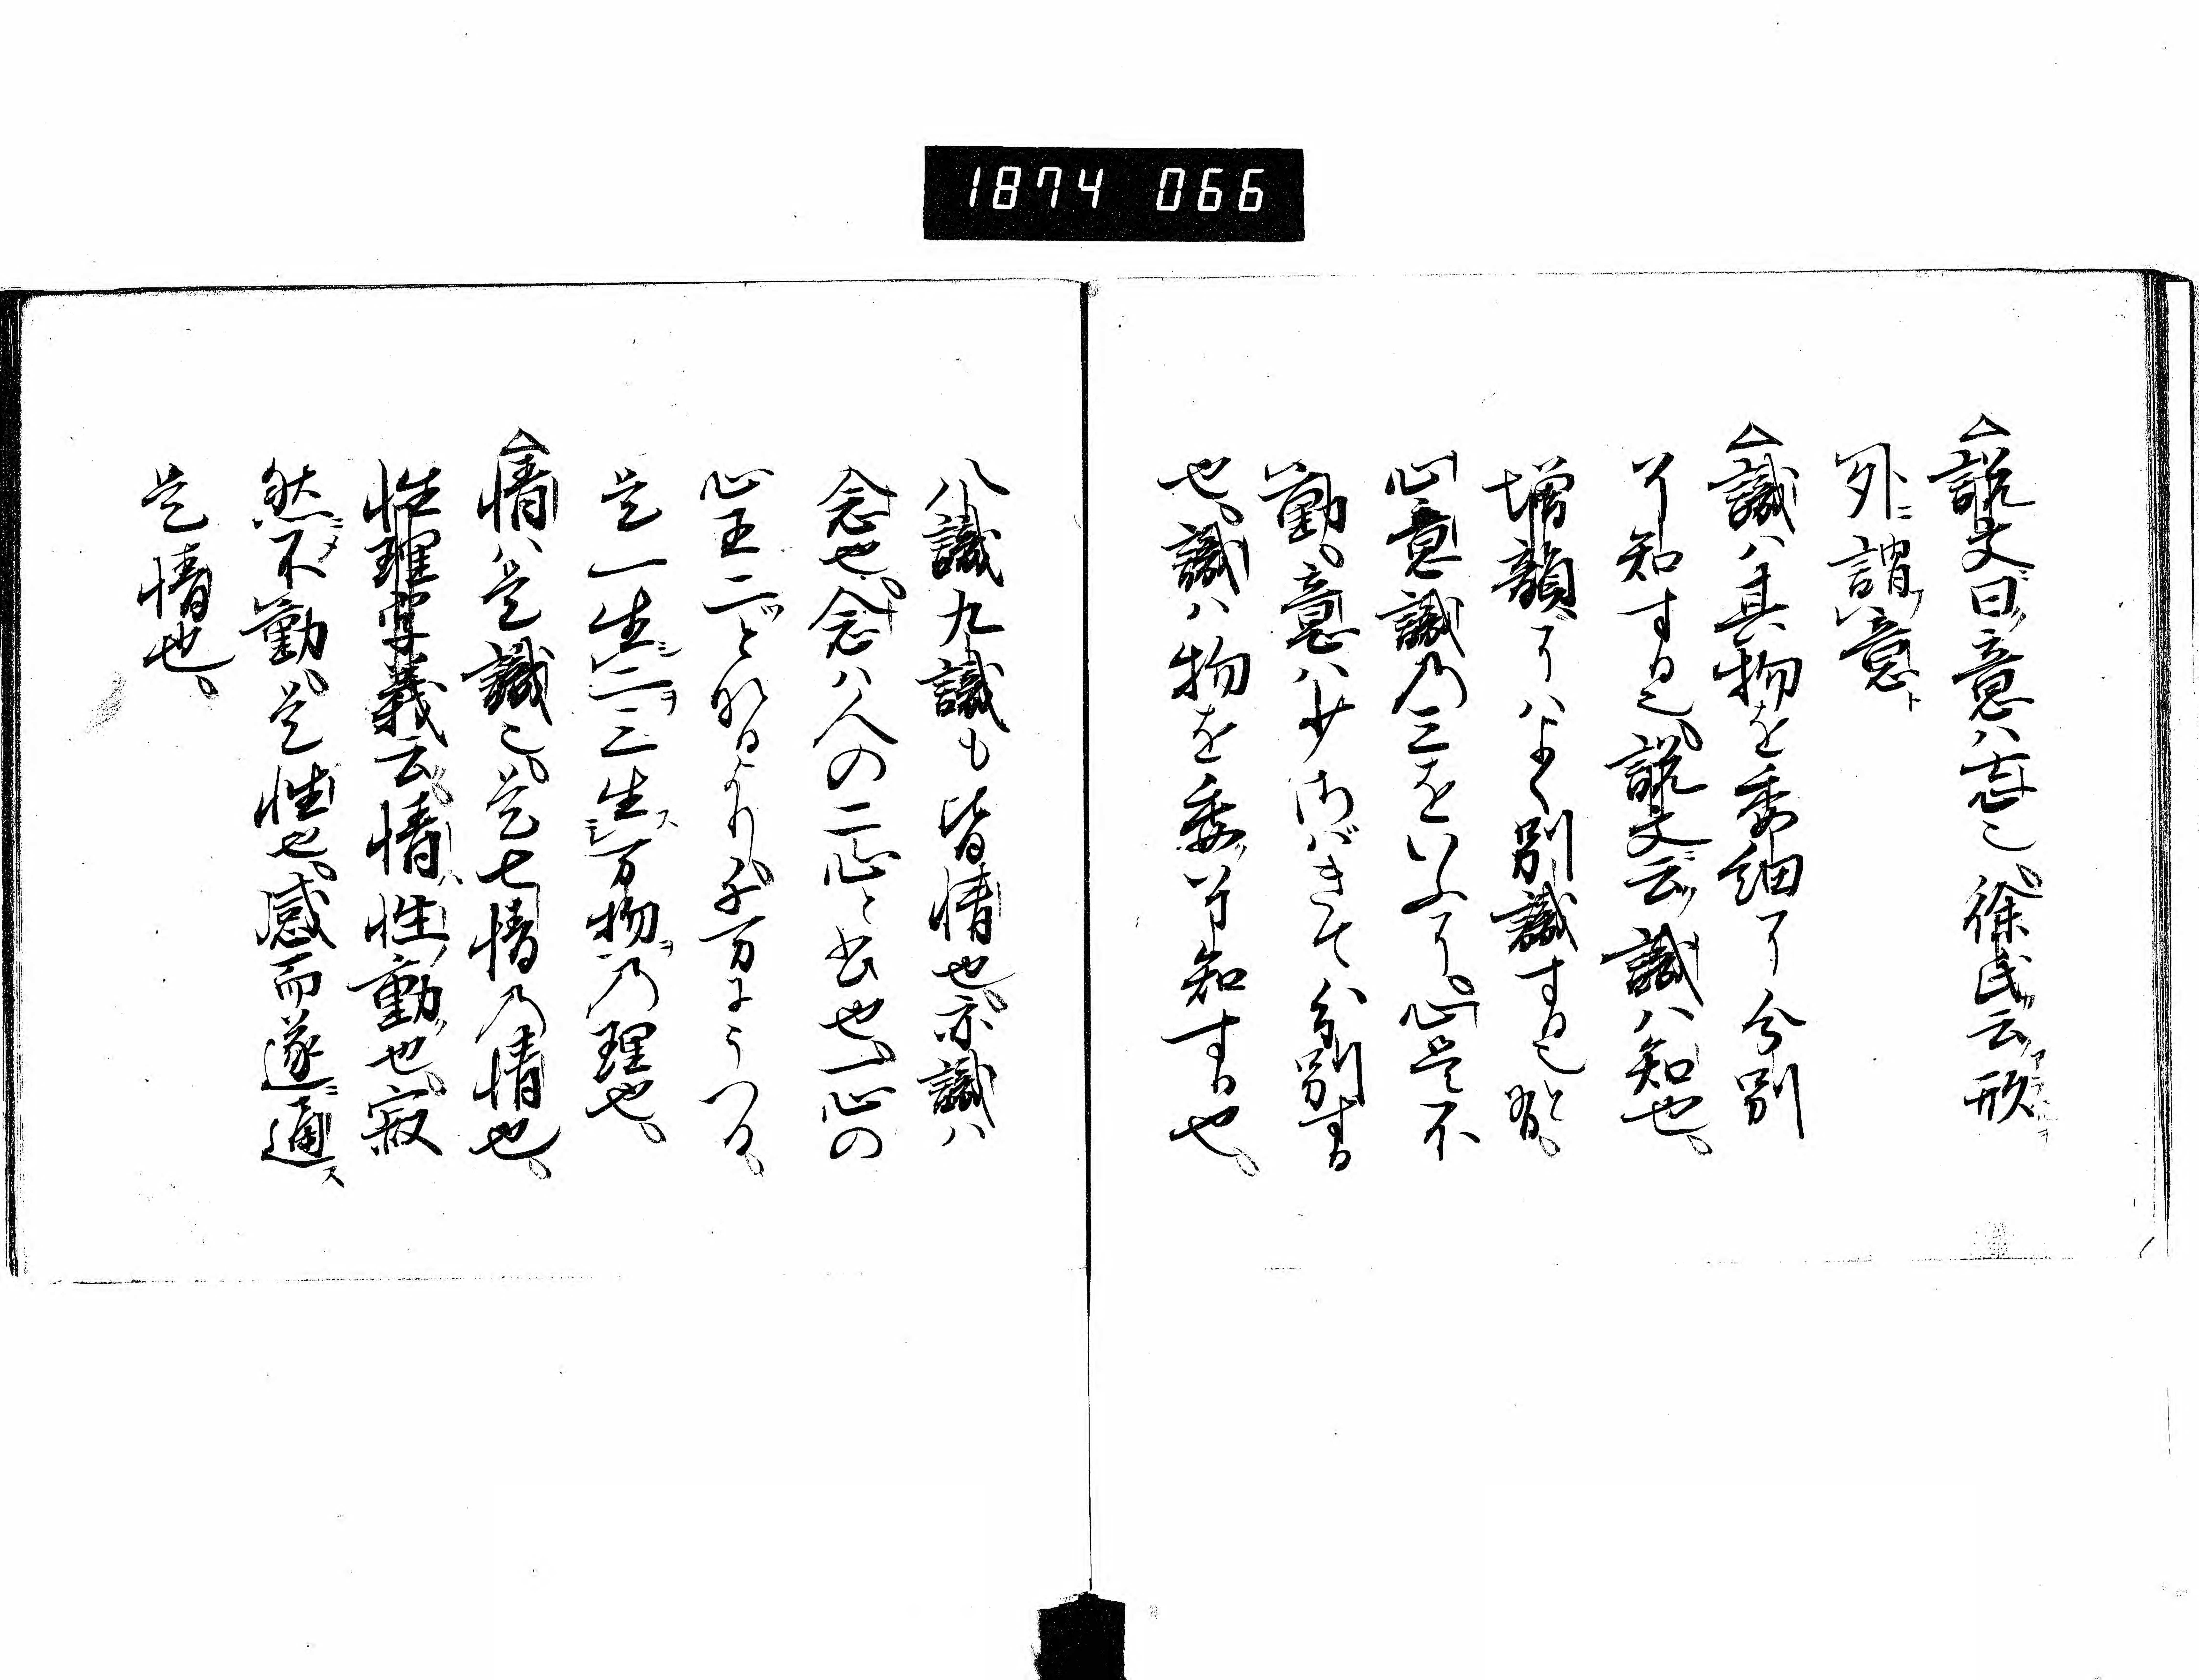 1874 066
△説文曰意ハ志也、徐氏云形
外ニ謂意ト
△識ハ其物を委細に分別
に知する也、説文云識ハ知也、
増韻にハよく別識する也
心意識乃三をいふに、心是不
動、意ハ少うごきて分別する
也、識ハ物を委に知する也、
八識九識も皆情也、亦識ハ
念也、念ハ人の二心と書也、一心の
心王二ツとなるより千万にうつる、
是一生シ二ヲ二生シ三ヲ三生ス万物ヲ乃理也、
△情ハ是識也、是七情乃情也、
性理字義云情ハ性ノ動也、寂
然ニメ不動、是性也、感而遂ニ通ス
是情也、